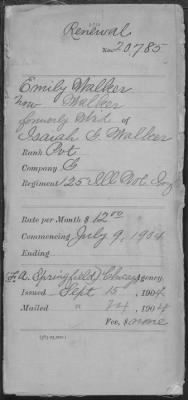 Renewal
No 20785
Emily Walker
now Walker
formerly Wid of
Isaiah G. Walker
Rank Pvt
Company G
Regiment 125 Ill Vol Inf
Rate per Month $ 12 00
Commencing July 9, 1904
Ending
F.A. (Springfield) Chicago Agency.
Issued Sept 15, 1904
Mailed " 24, 1904
Fee, $ none